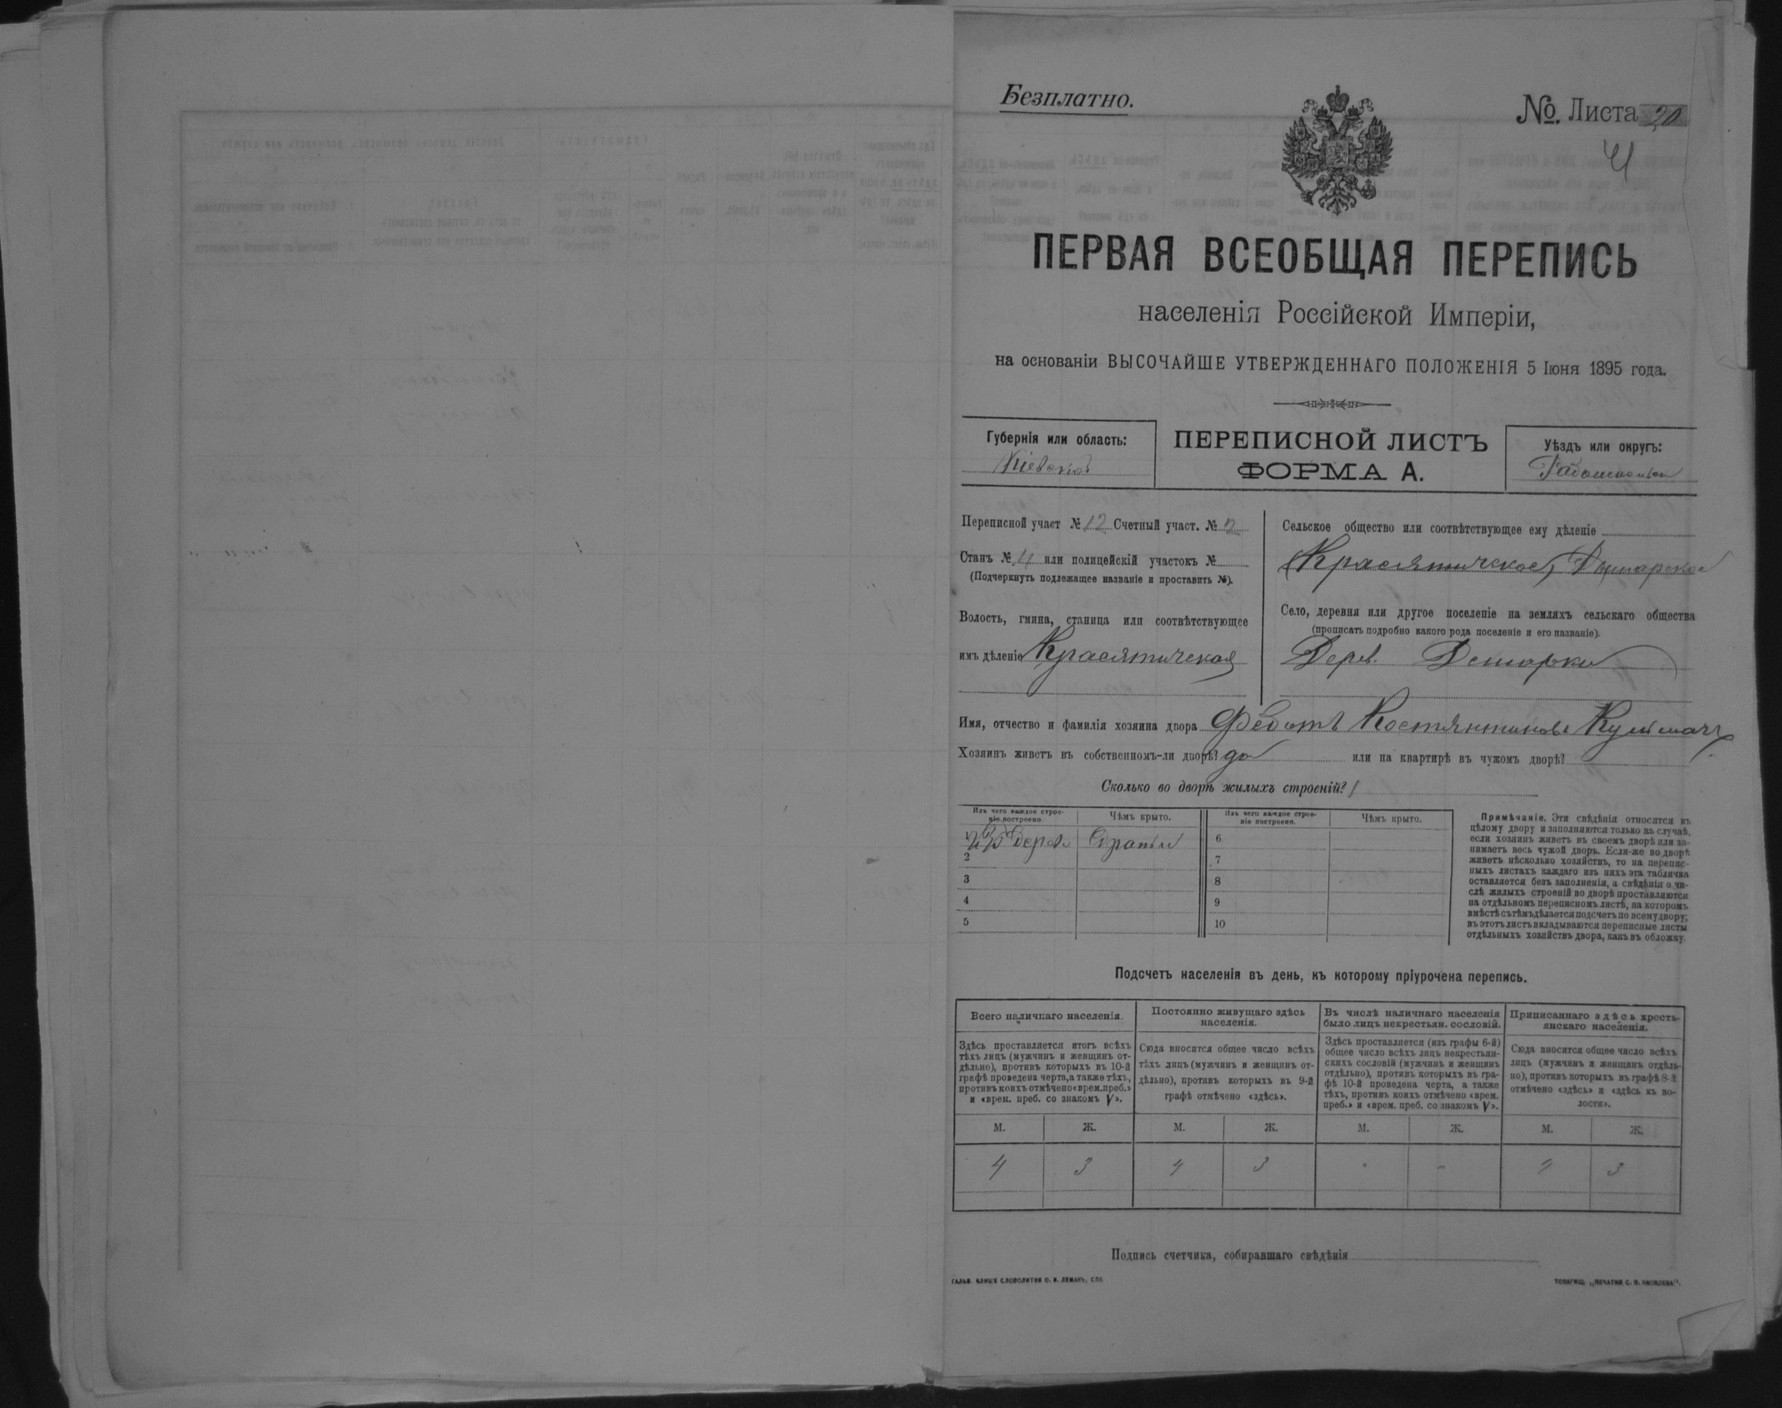 Безплатно.
№. Листа 20
41
ПЕРВАЯ ВСЕОБЩАЯ ПЕРЕПИСЬ
населенія Россійской Имперіи,
на основаніи ВЫСОЧАЙШЕ УТВЕРЖДЕННАГО ПОЛОЖЕНІЯ 5 Іюня 1895 года.
Губернія или область:
Кіевская
ПЕРЕПИСНОЙ ЛИСТЪ
ФОРМА А.
Уѣздъ или округъ:
Переписной участ № 12 Счетный участ. № 2
Станъ № 4 или полицейскій участокъ №
(Подчеркнуть подлежащее названіе и проставить №).
Волость, гмина, станица или соотвѣтствующее
имъ дѣленіе Красятическая
Сельское общество или соотвѣтствующее ему дѣленіе
Красятическое,
Село, деревня или другое поселеніе на земляхъ сельскаго общества
(прописать подробно какого рода поселеніе и его названіе).
Дерев.
Имя, отчество и фамилія хозяина двора Федотъ Костянтиновъ
Хозяинъ живетъ въ собственномъ-ли дворѣ? да или на квартирѣ въ чужомъ дворѣ?
Сколько во дворѣ жилыхъ строеній? 1
Изъ чего каждое строе-
ніе построено.
Чѣмъ крыто.
Изъ чего каждое строе-
ніе построено.
Чѣмъ крыто.
1 Изъ дерева
2
3
4
5
6
7
8
9
10
Примѣчаніе. Эти свѣдѣнія относятся къ
цѣлому двору и заполняются только въ случаѣ,
если хозяинъ живетъ въ своемъ дворѣ или за-
нимаетъ весь чужой дворъ. Если-же во дворѣ
живетъ нѣсколько хозяйствъ, то на перепис-
ныхъ листахъ каждаго изъ нихъ эта табличка
оставляется безъ заполненія, а свѣдѣнія о чи-
слѣ жилыхъ строеній во дворѣ проставляются
на отдѣльномъ переписномъ листѣ, на которомъ
вмѣстѣ съ тѣмъ дѣлается подсчетъ по всему двору;
въ этотъ листъ вкладываются переписные листы
отдѣльныхъ хозяйствъ двора, какъ въ обложку.
Подсчетъ населенія въ день, къ которому пріурочена перепись.
Всего наличнаго населенія.
Здѣсь проставляется итогъ всѣхъ
тѣхъ лицъ (мужчинъ и женщинъ от-
дѣльно), противъ которыхъ въ 10-й
графѣ проведена черта, а также тѣхъ,
противъ коихъ отмѣчено «врем. преб.»
и «врем. преб. со знакомъ V».
Постоянно живущаго здѣсь
населенія.
Сюда вносится общее число всѣхъ
тѣхъ лицъ (мужчинъ и женщинъ от-
дѣльно), противъ которыхъ въ 9-й
графѣ отмѣчено «здѣсь».
Въ числѣ наличнаго населенія
было лицъ некрестьян. сословій.
Здѣсь проставляется (изъ графы 6-й)
общее число всѣхъ лицъ некрестьян-
скихъ сословій (мужчинъ и женщинъ
отдѣльно), противъ которыхъ въ гра-
фѣ 10-й проведена черта, а также
тѣхъ, противъ коихъ отмѣчено «врем.
преб.» и «врем. преб. со знакомъ V».
Приписаннаго здѣсь кресть-
янскаго населенія.
Сюда вносится общее число всѣхъ
лицъ (мужчинъ и женщинъ отдѣль-
но), противъ которыхъ въ графѣ 8-й
отмѣчено «здѣсь» и «здѣсь къ во-
лости».
М. Ж. М. Ж. М. Ж. М. Ж.
4 3 4 3 - - 4 3
Подпись счетчика, собиравшаго свѣдѣнія
ГАЛЬВ. КЛИШЕ СЛОВОЛИТНИ О. И. ЛЕМАНЪ, СПБ.
ТОВАРИЩ. „ПЕЧАТНЯ С. П. ЯКОВЛЕВА".